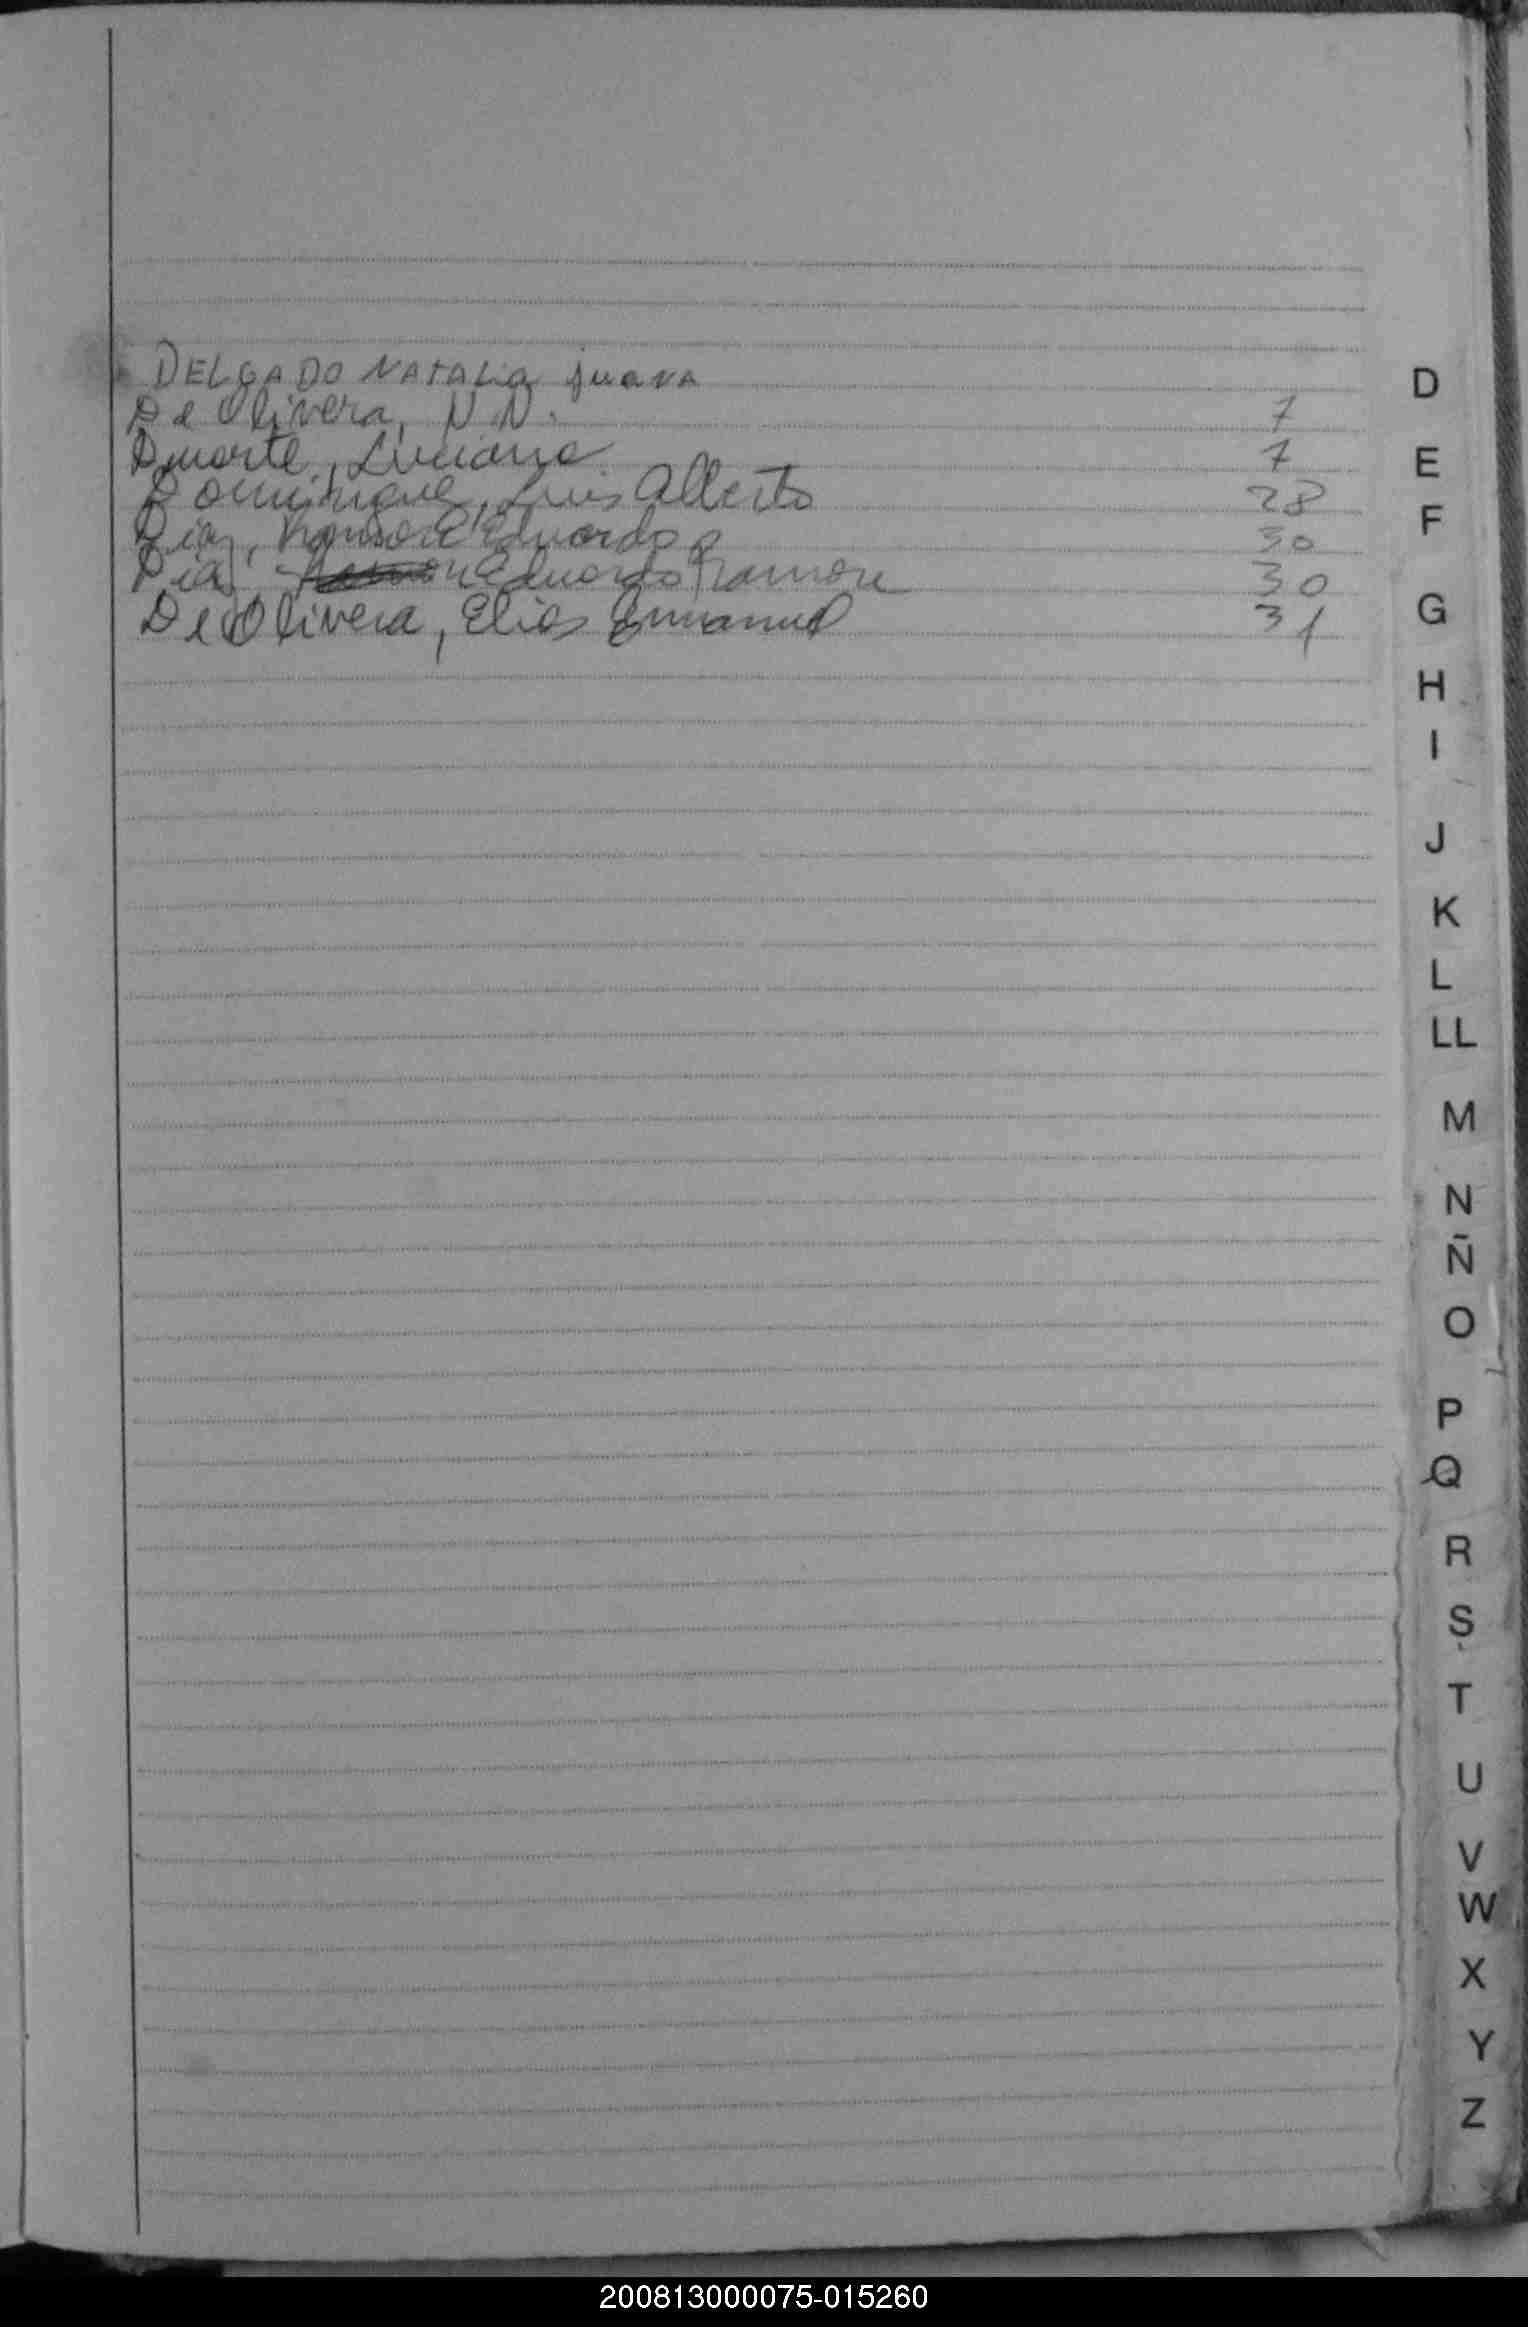 DELGADO NATALIA juana
De Olivera, N N. 7
Duarte, Luciano 7
Dominguez, Luis Alberto 28
Diaz, Ramon Eduardo 30
Diaz Eduardo Ramon 30
De Olivera, Elias Emanuel 31
D
E
F
G
H
I
J
K
L
LL
M
N
Ñ
O
P
Q
R
S
T
U
V
W
X
Y
Z
200813000075-015260